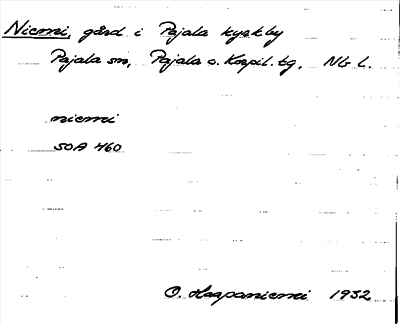 Niemi, gård i Pajala kyrkby
Pajala sn, Pajala o. Korpil. tg, Nb L.
niemi
SOA 460
O. Haapaniemi 1932